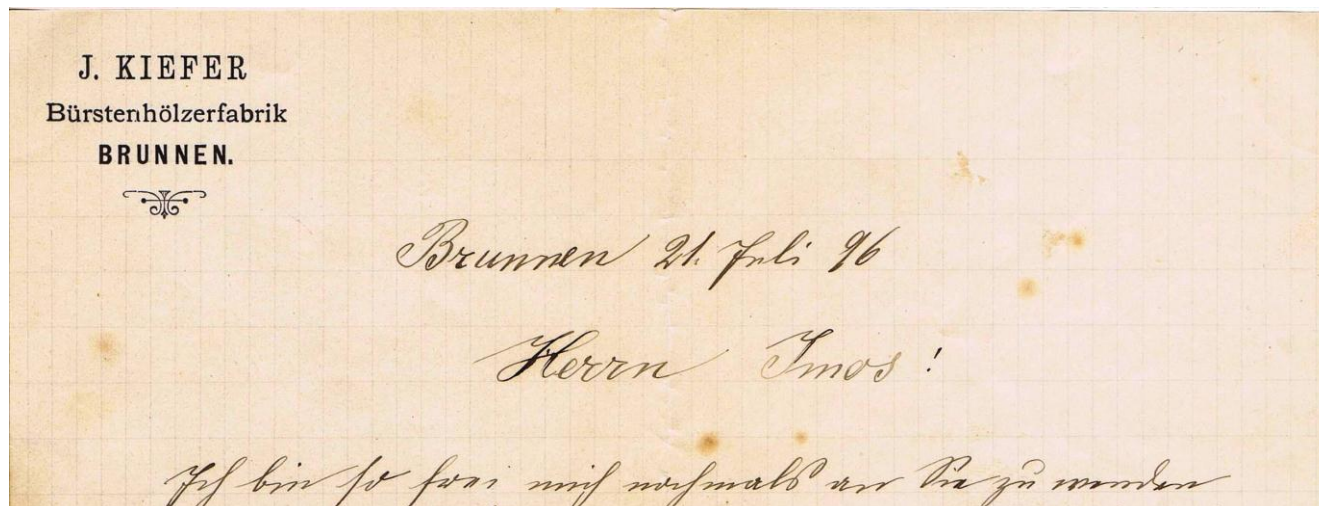 J. KIEFER
Bürstenhölzerfabrik
BRUNNEN.
Brunnen 21. Juli 96
Herrn Imos!
Ich bin so frei mich nochmals an Sie zu wenden